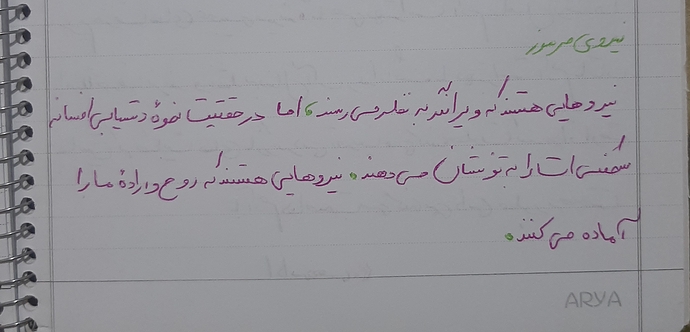 نیروی مرموز
نیروهایی هستند که ویرانگر به نظر می رسند، اما در حقیقت نحوهٔ دستیابی افسانه
شخصی ات را به تو نشان می دهند. نیروهایی هستند که روح و ارادهٔ ما را
آماده می کنند.
ARYA